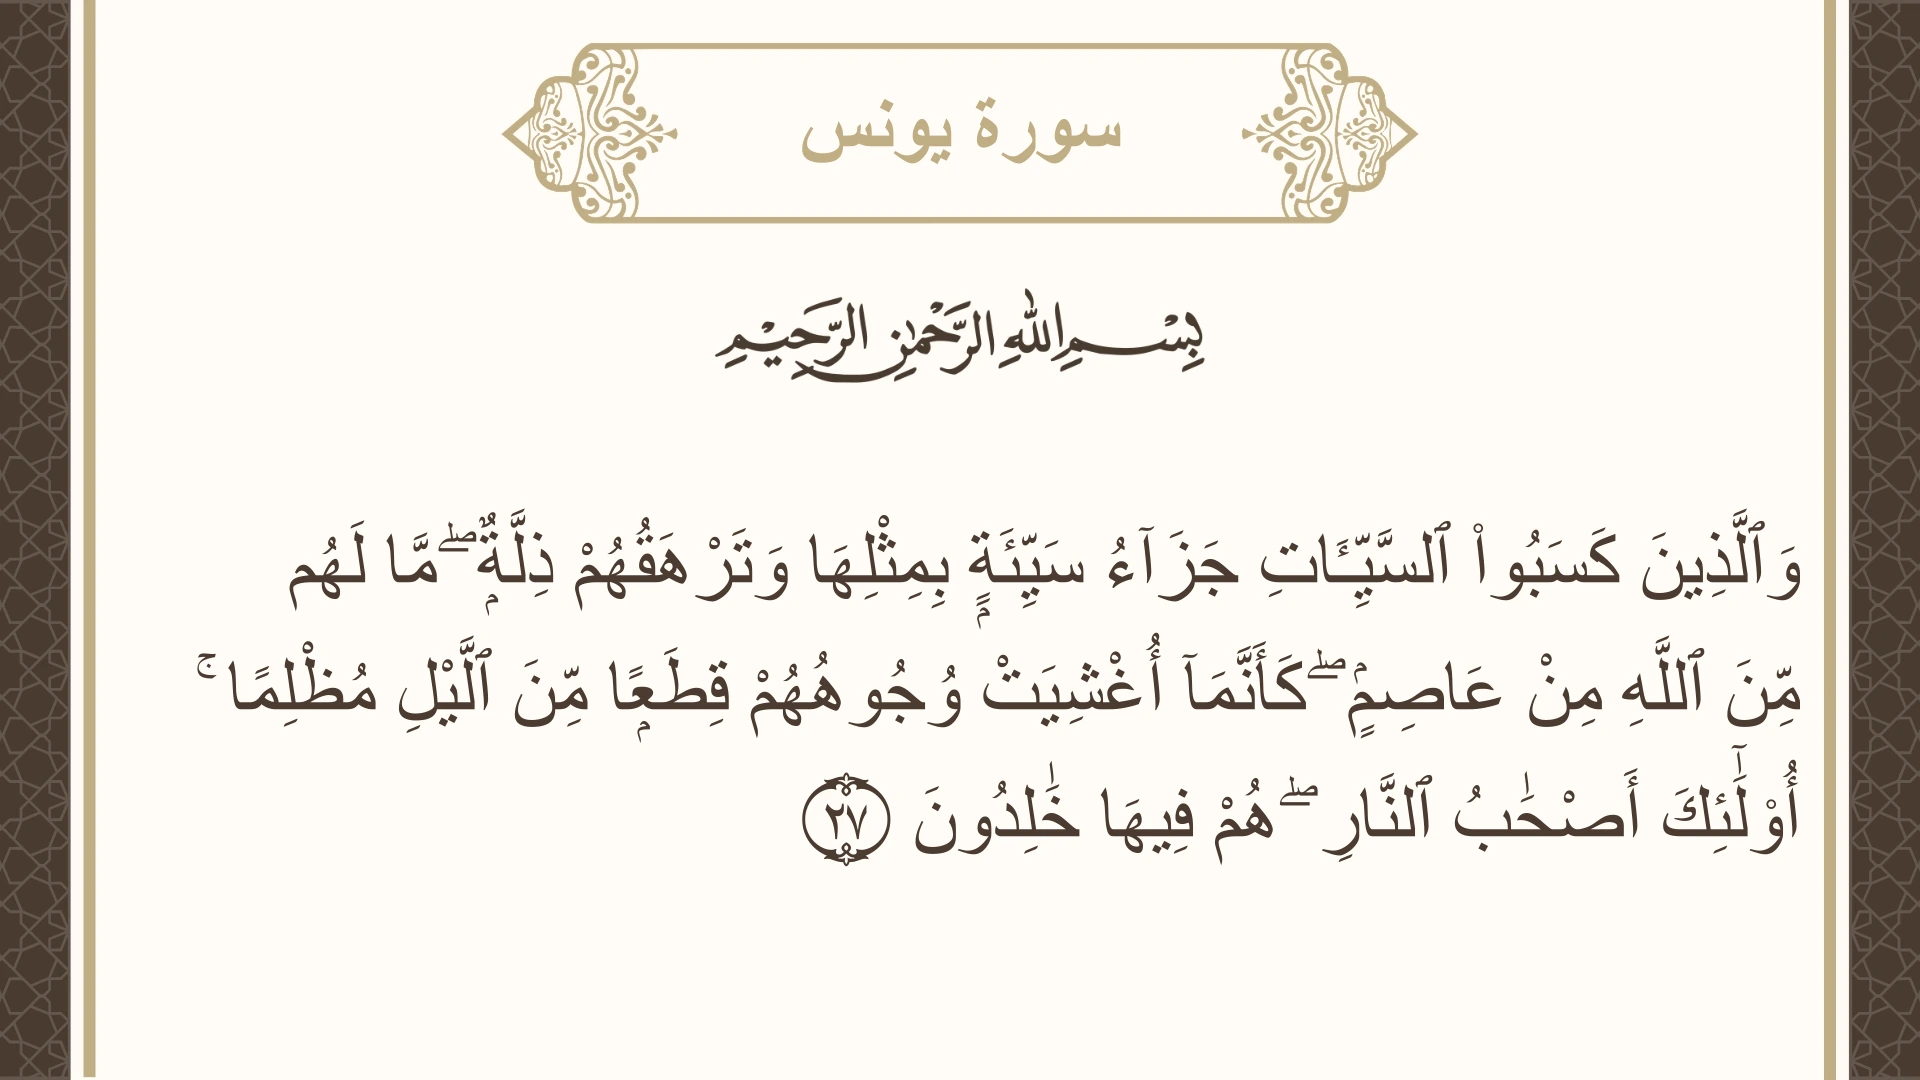 سورة يونس
بِسْمِ اللهِ الرَّحْمٰنِ الرَّحِيْمِ
وَٱلَّذِينَ كَسَبُوا۟ ٱلسَّيِّـَٔاتِ جَزَآءُ سَيِّئَةٍۭ بِمِثْلِهَا وَتَرْهَقُهُمْ ذِلَّةٌۭ ۖ مَّا لَهُم
مِّنَ ٱللَّهِ مِنْ عَاصِمٍۢ ۖ كَأَنَّمَآ أُغْشِيَتْ وُجُوهُهُمْ قِطَعًۭا مِّنَ ٱلَّيْلِ مُظْلِمًا ۚ
أُو۟لَٰٓئِكَ أَصْحَٰبُ ٱلنَّارِ ۖ هُمْ فِيهَا خَٰلِدُونَ ۝٢٧